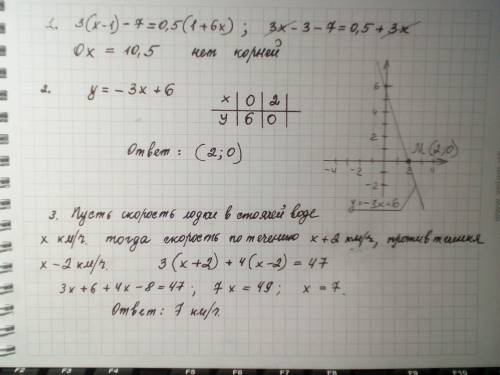 1. 3(x-1)-7=0,5(1+6x) ; 3x-3-7=0,5+3x
0x = 10,5 нет корней
2. y=-3x+6
x | 0 | 2
y | 6 | 0
Ответ: (2;0)
6
4
2
-4 -2 2 4
-2
M(2;0)
y=-3x+6
3. Пусть скорость лодки в стоячей воде
x км/ч. тогда скорость по течению x+2 км/ч, против течения
x-2 км/ч. 3(x+2)+4(x-2)=47
3x+6+4x-8=47; 7x=49; x=7.
Ответ: 7 км/ч.
F2 F3 F4 F5 F6 F7 F8 F9 F10